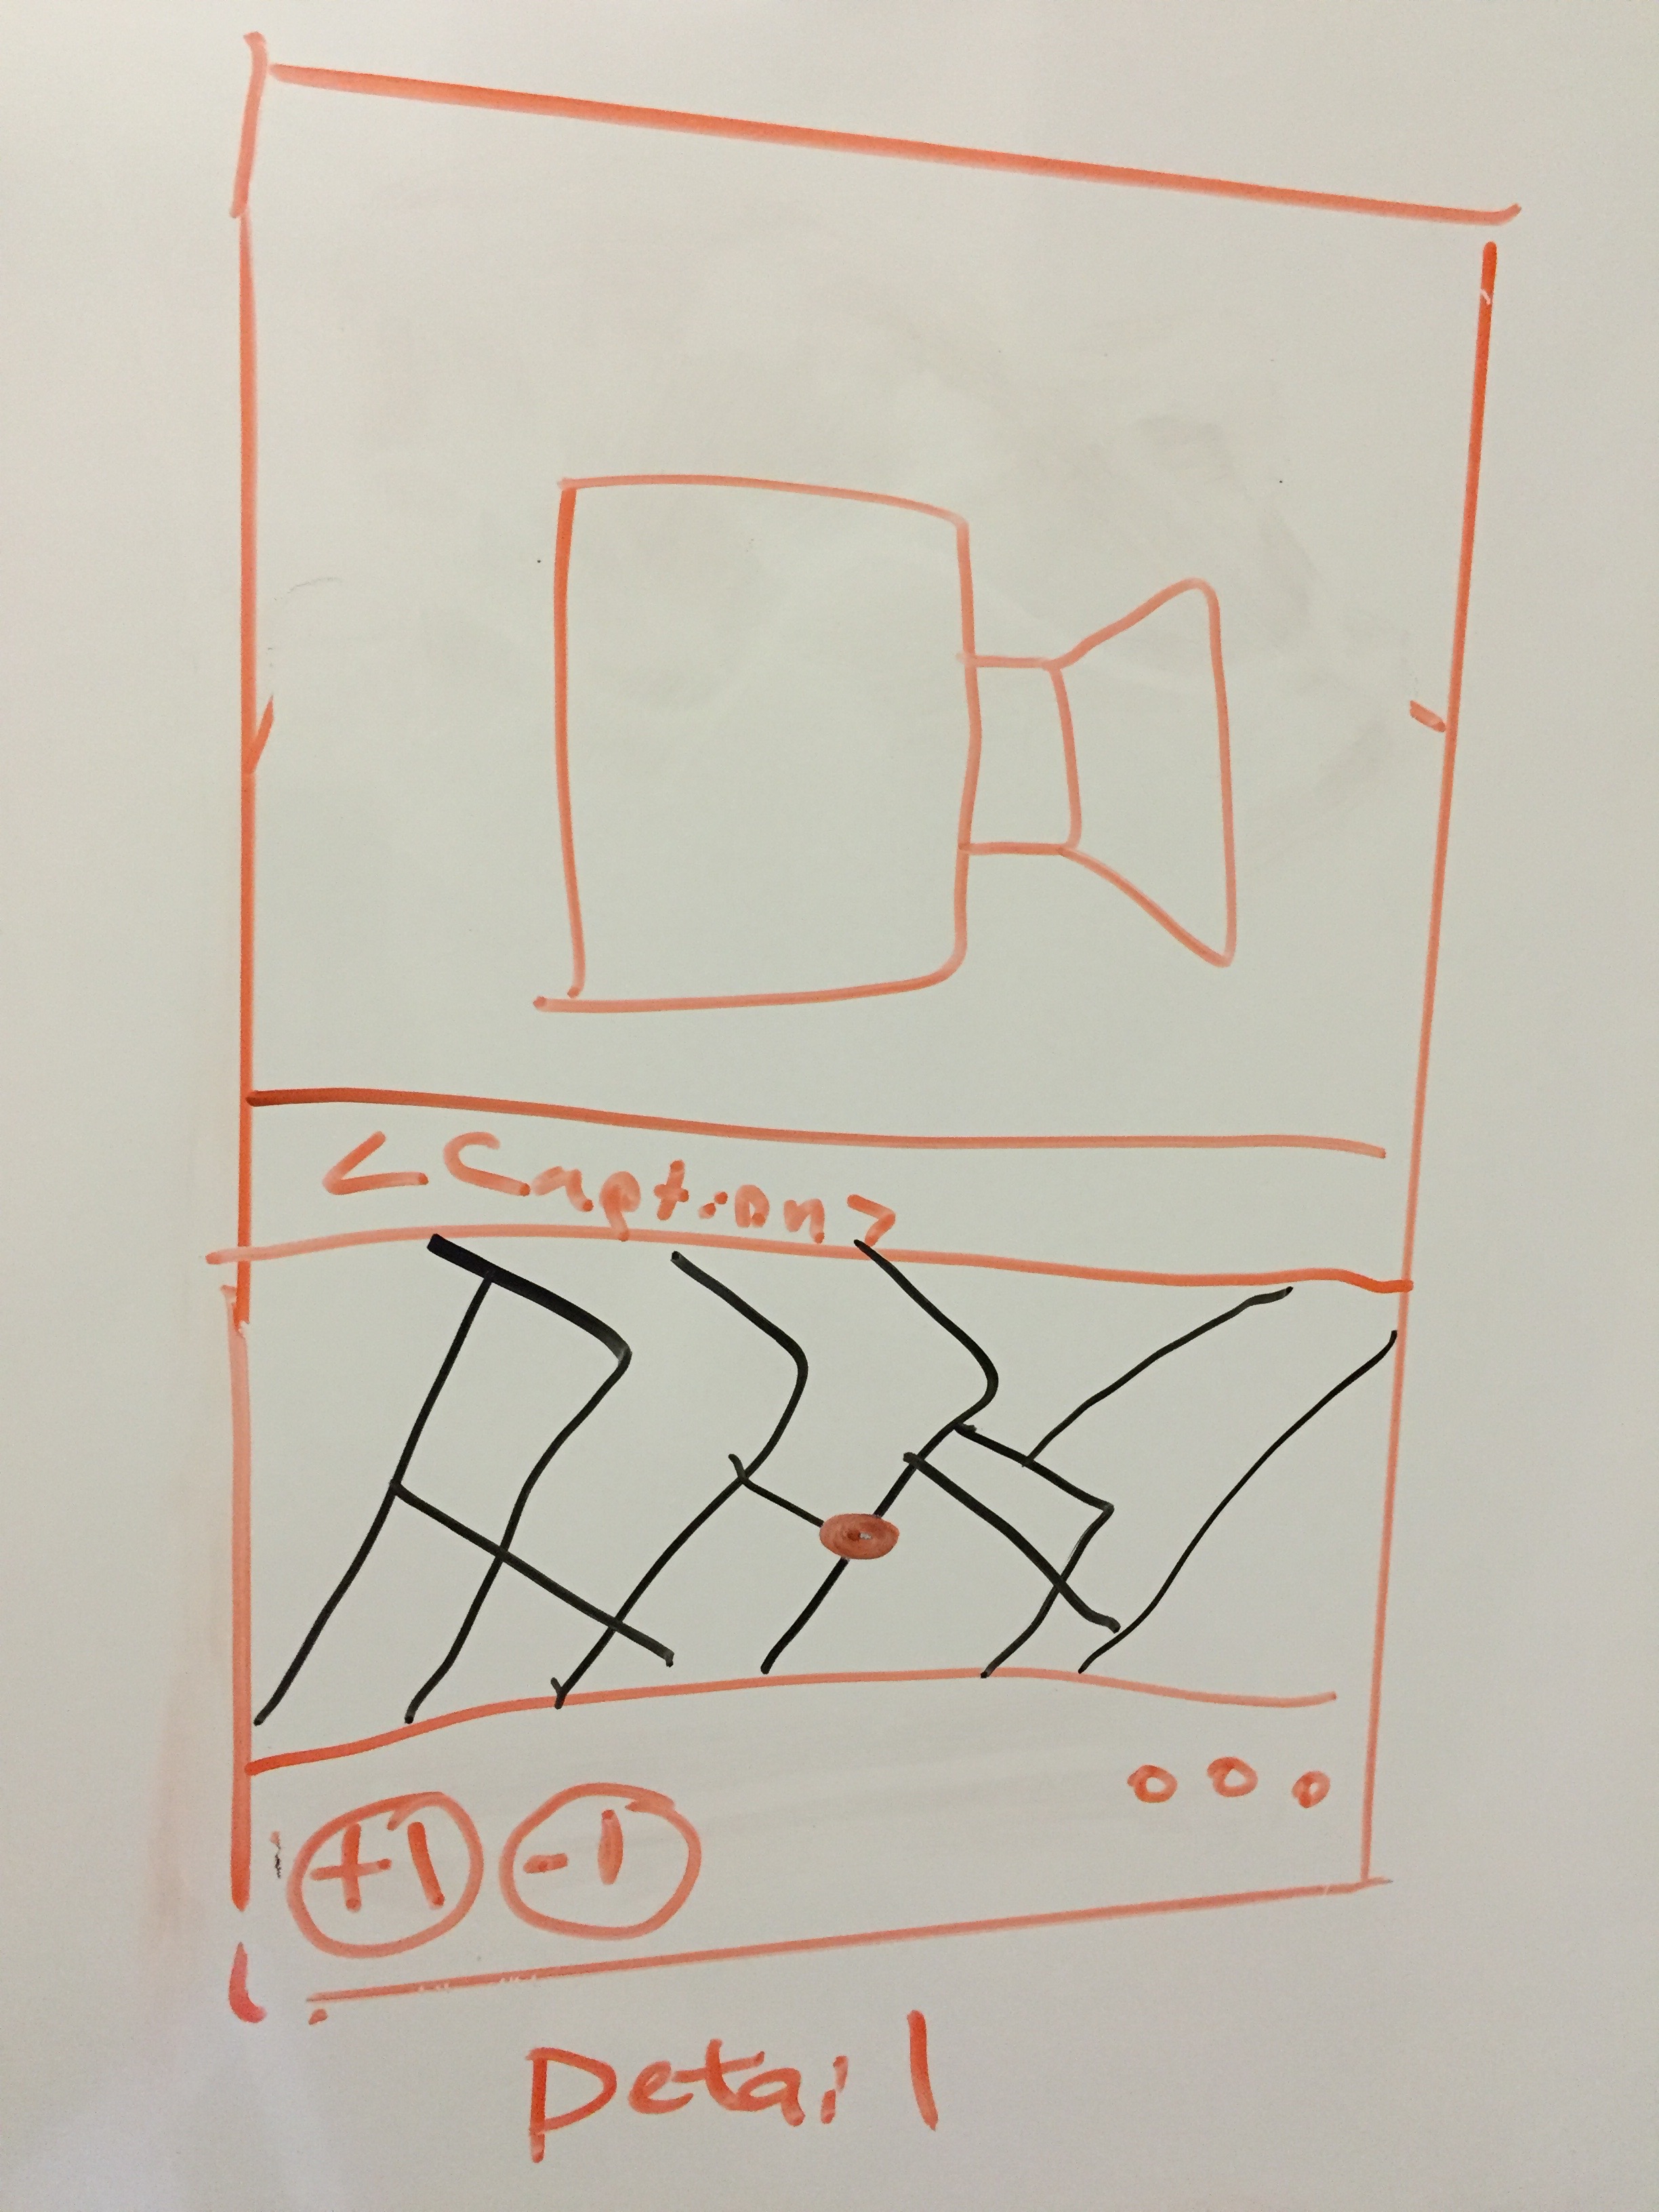 <Caption>
+1 -1
Detail